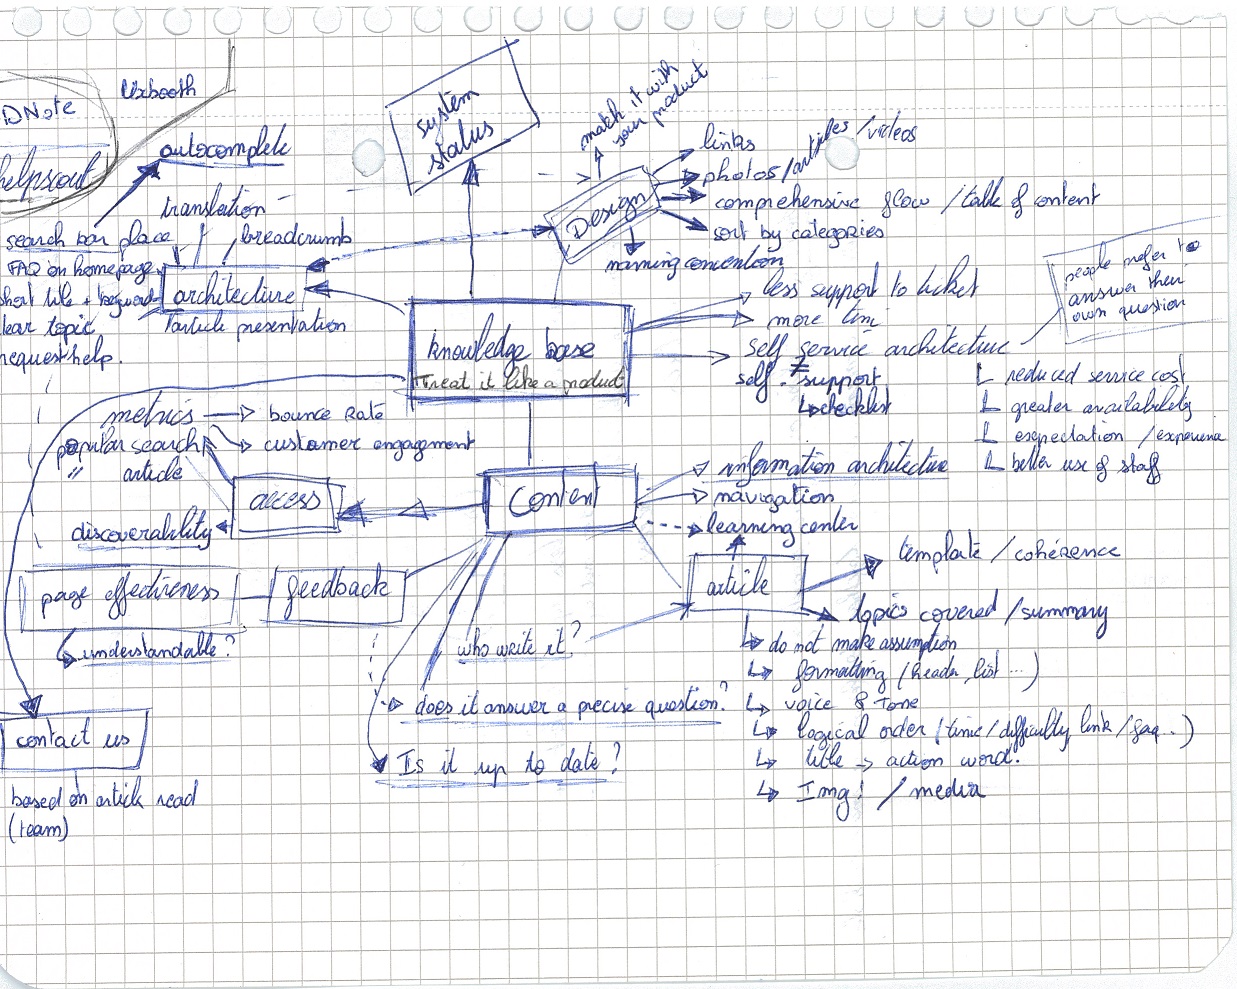 Uxbooth
DNote
helpscout
autocomplete
translation
breadcrumb
search bar place
FAQ on homepage
short title +
lear topic
request help.
architecture
article presentation
system
status
match it with
your product
Design
links
photos / articles / videos
comprehensive flow / table of content
sort by categories
naming convention
people prefer to
answer their
own question
knowledge base
Treat it like a product
less support to ticket
more tim
self service architecture
≠
self - support
checklist
reduced service cost
greater availability
expectation / experience
better use of staff
metrics
bounce rate
customer engagment
popular search
" article
access
discoverability
Content
information architecture
navigation
learning center
page effectiveness
feedback
understandable ?
who write it?
article
template / cohérence
topics covered / summary
do not make assumption
formatting (header, list ... )
voice & tone
logical order (time / difficulty link / faq .. )
title → action word.
Img! / media
does it answer a precise question?
Is it up to date ?
contact us
based on article read
(team)